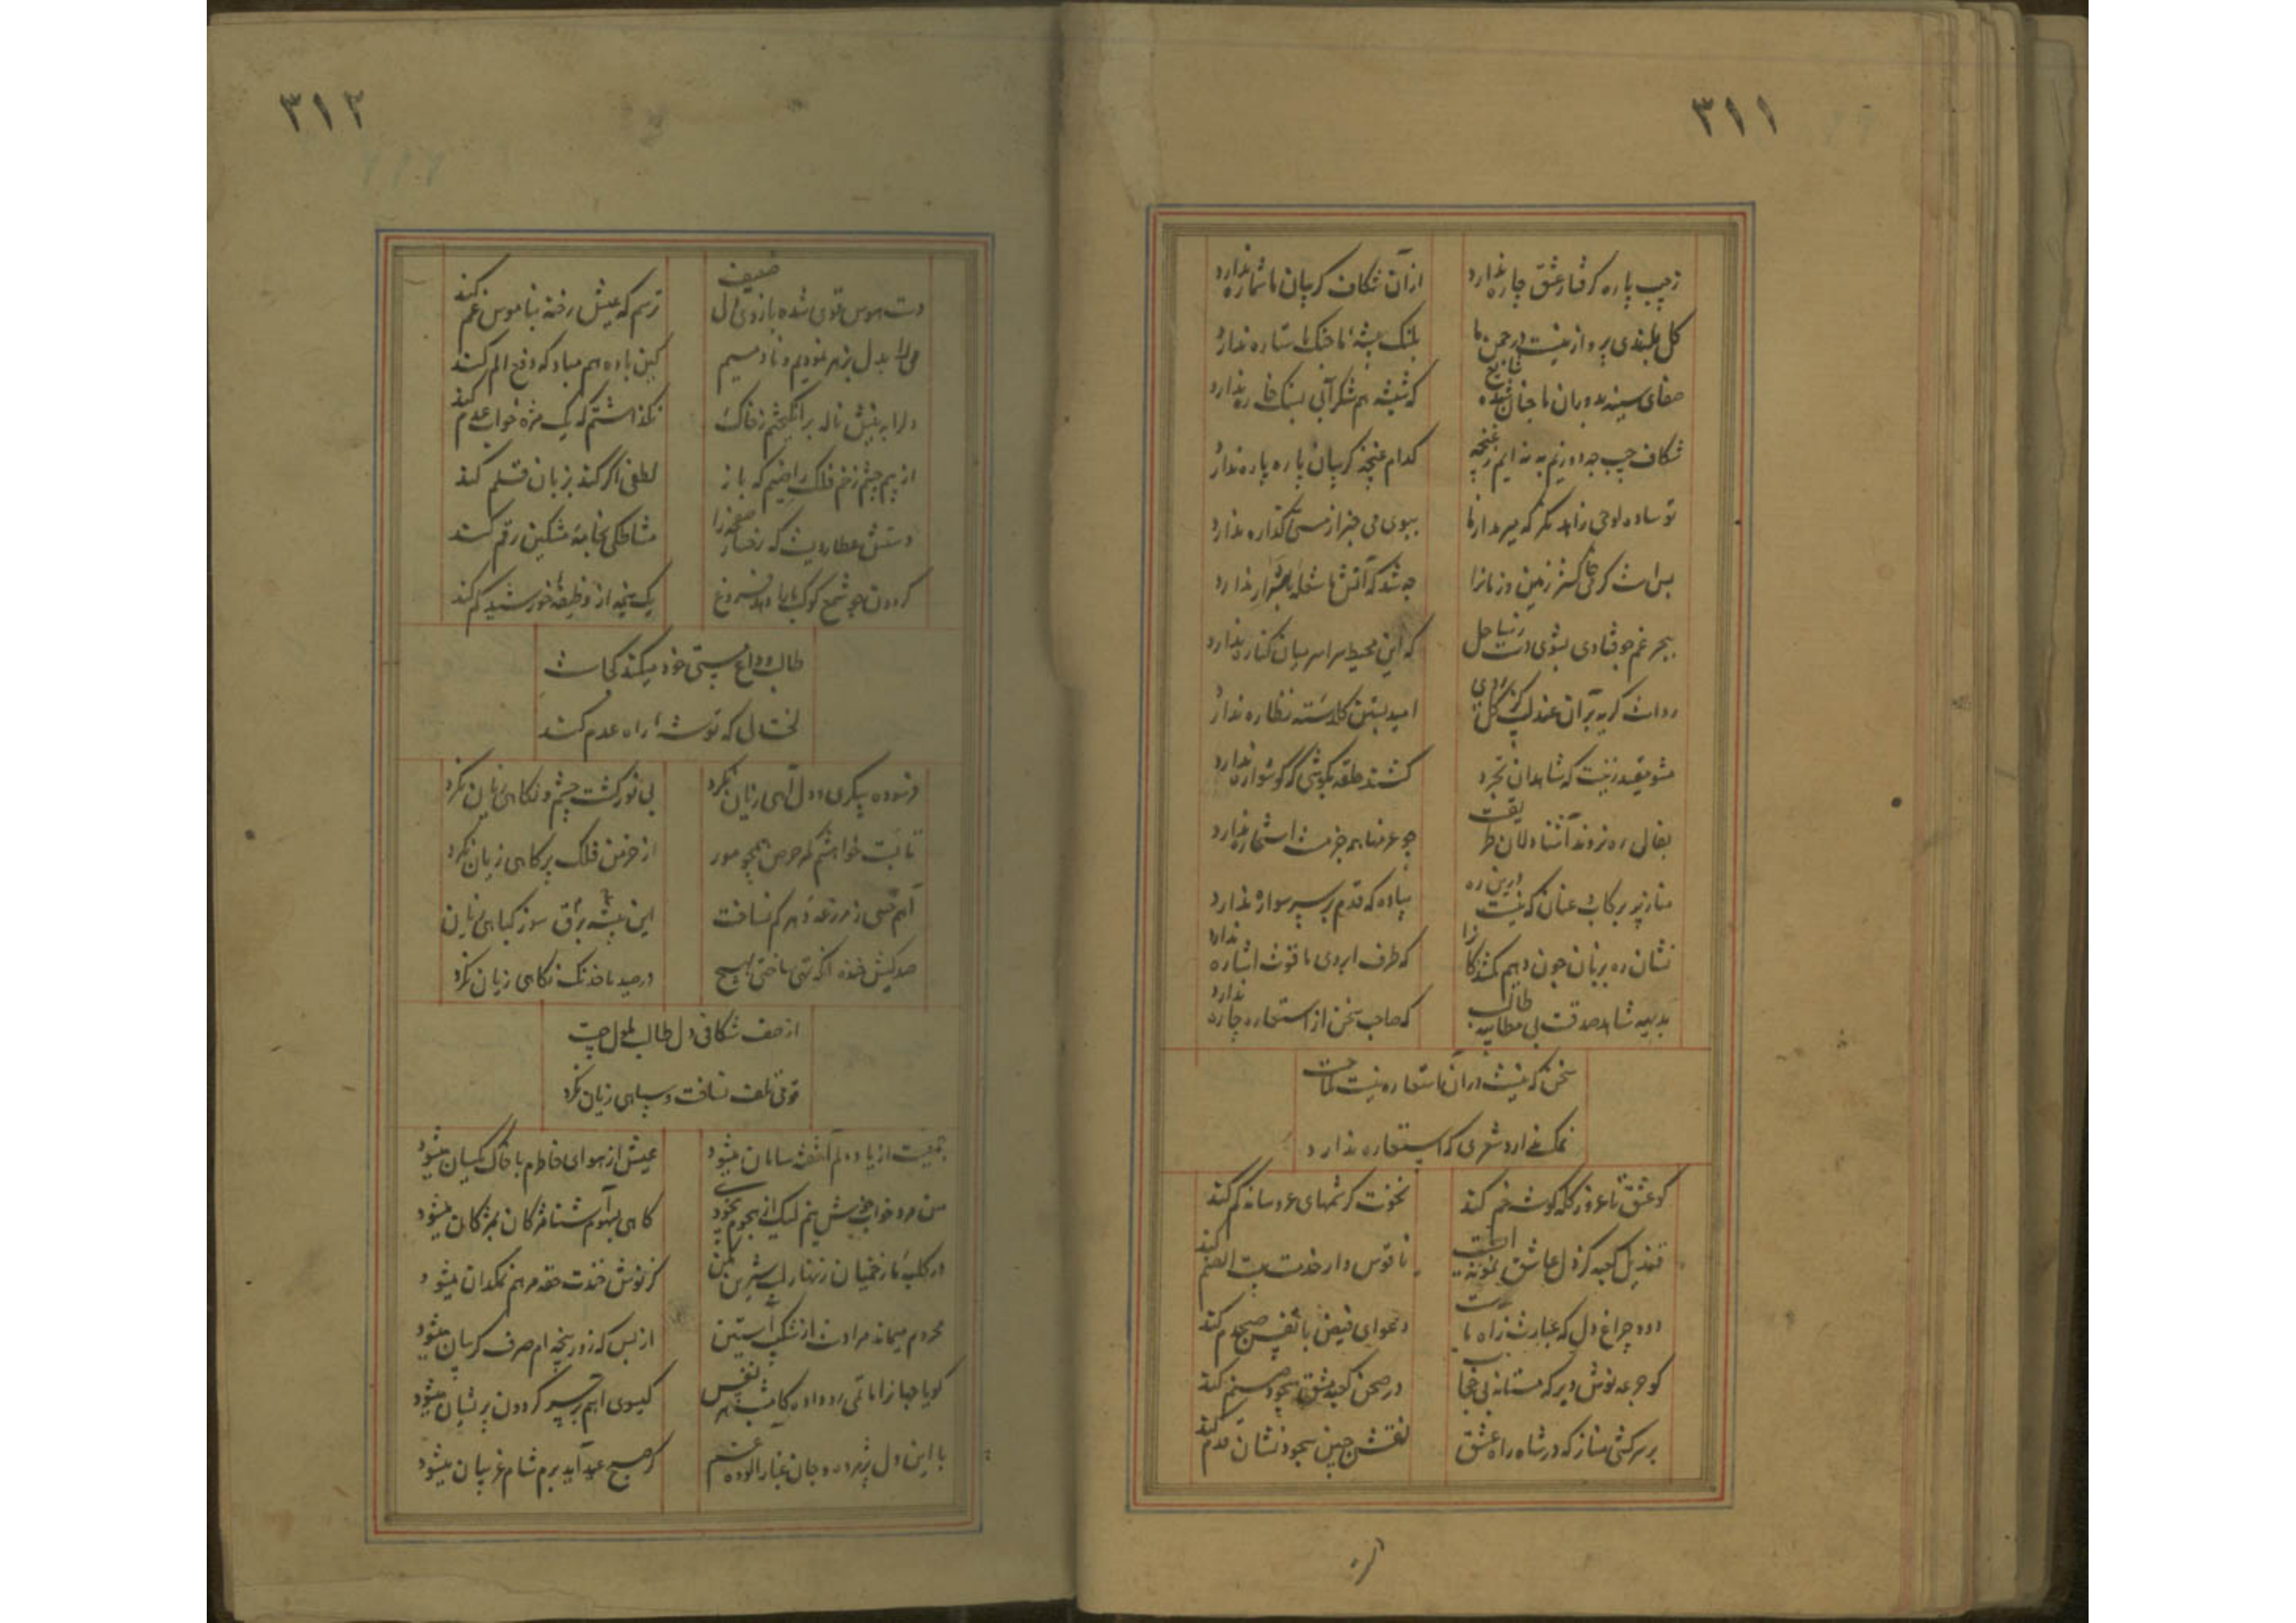 ۳۱۱
ز جیب پاره گرفتار عشق چاره ندارد
از آن شکاف گریبان ما شماره ندارد
گل بلندی پرواز نیست در چمن ما
پلنگ بیشهٔ ما جنگ با ستاره ندارد
صفای سینه بدوران ما چنان شده
که شیشه هم شکرآبی بسنگ خاره ندارد
شکاف جیب چه دوزیم نه ایم ز غنچه
کدام غنچه گریبان پاره پاره ندارد
تو ساده لوحی زاهد نگر که میر مدارنا
ببوی می خبر از مستی گذاره ندارد
بس است گرمی خاکستر زمین و زمانرا
چه شد که آتش ما شعله یا شرار ندارد
ببحر غم چو فتادی بشوی دست ز ساحل
که این محیط سراسر میان کناره ندارد
رواست گریه بر آن عندلیب کز گل
امید بستن گلدسته نظاره ندارد
مشو مقید زینت که شاهدان تجرد
کشند حلقه بگوشی که گوشواره ندارد
بفال ره نروند آشنا دلان طریقت
چو عزم ما همه جزمست استخاره ندارد
مناز پر برکاب و عنان که نیست درین ره
پیاده که قدم بر سر سواره ندارد
نشان ره بزبان چون دهیم گمشدگانرا
که طرف ابروی ما قوت اشاره ندارد
بدیهه شاهد صدقست بی مطایبه طالب
که صاحب سخن از استعاره چاره ندارد
سخن که نیست در آن استعاره نیست ملاحت
نمک ندارد شعری که استعاره ندارد
کو عشق تا غرور کله گوشه خم کند
نخوت کرشمهای عروسانه کم کند
قندیل کعبه کز دل عاشق نمونه ایست
ناقوس وار خدمت بیت الصنم کند
دود چراغ دل که غباریست ز آه ما
دعوای فیض با نفس صبحدم کند
کو جرعه نوش دیر که مستانه بی حجاب
در صحن کعبه مشق سجود صنم کند
بر سرکشی مناز که در شاه راه عشق
نقش جبین سجود نشان قدم کند
۳۱۲
دست هوس قوی شده بازوی دل ضعیف
ترسم که عیش رخنه بناموس غم کند
می را بدل بزهر نمودیم و نادمیم
کین باده هم مباد که دفع الم کند
دلرا به نیش ناله برانگیختم ز خاک
نگذاشتم که یک مژه خواب عدم کند
از بیم چشم زخم فلک راضیم که باز
لطفی اگر کند بزبان قلم کند
دستش عطاردیست که رخسار صفحه را
مشاطگی بخامهٔ مشکین رقم کند
گردون چو شمع کوکب ما را دهد فروغ
یک نیمه از وظیفهٔ خورشید کم کند
طالب وداع هستی خود میکند کجاست
لخت دلی که توشهٔ راه عدم کند
فرسوده پیکری و دل آهی زیان نکرد
بی نور گشت چشم و نگاهی زیان نکرد
تا بست خواهشم کمر حرص همچو مور
از خرمن فلک پر کاهی زیان نکرد
آهم خسی ز مزرعهٔ دهر کم نساخت
این بیشه برق سوز گیاهی زیان
صد کیش خنده اگر تهی ساختی هیچ
در صید ما خدنگ نگاهی زیان نکرد
از صف شکافی دل طالب ملول چیست
قومی تلف نساخت و سپاهی زیان نکرد
جمعیت از یاد دلم آشفته سامان میشود
عیش از هوای خاطرم با خاک یکسان میشود
من مرد خواب خوش نیم لیک از هجوم بیخودی
گاهی بسهوم آشنا مژگان بمژگان میشود
در کلبهٔ ما زخمیان زنهار لب شیرین مکن
کز نوش خندت حقه مرهم نمکدان میشود
محروم میماند مرادست از شکیب آستین
از بس که زور پنجه ام صرف گریبان میشود
گویا جهانرا ماتمی رو داده کامشب هر نفس
گیسوی آهم بر سر گردون پریشان میشود
با این دل پژمرده و جان غبار آلوده غم
گر صبح عید آید برم شام غریبان میشود